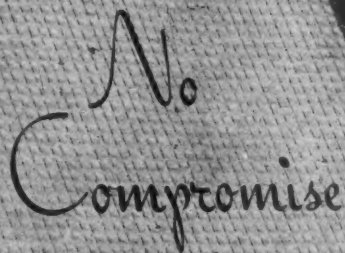 No
Compromise